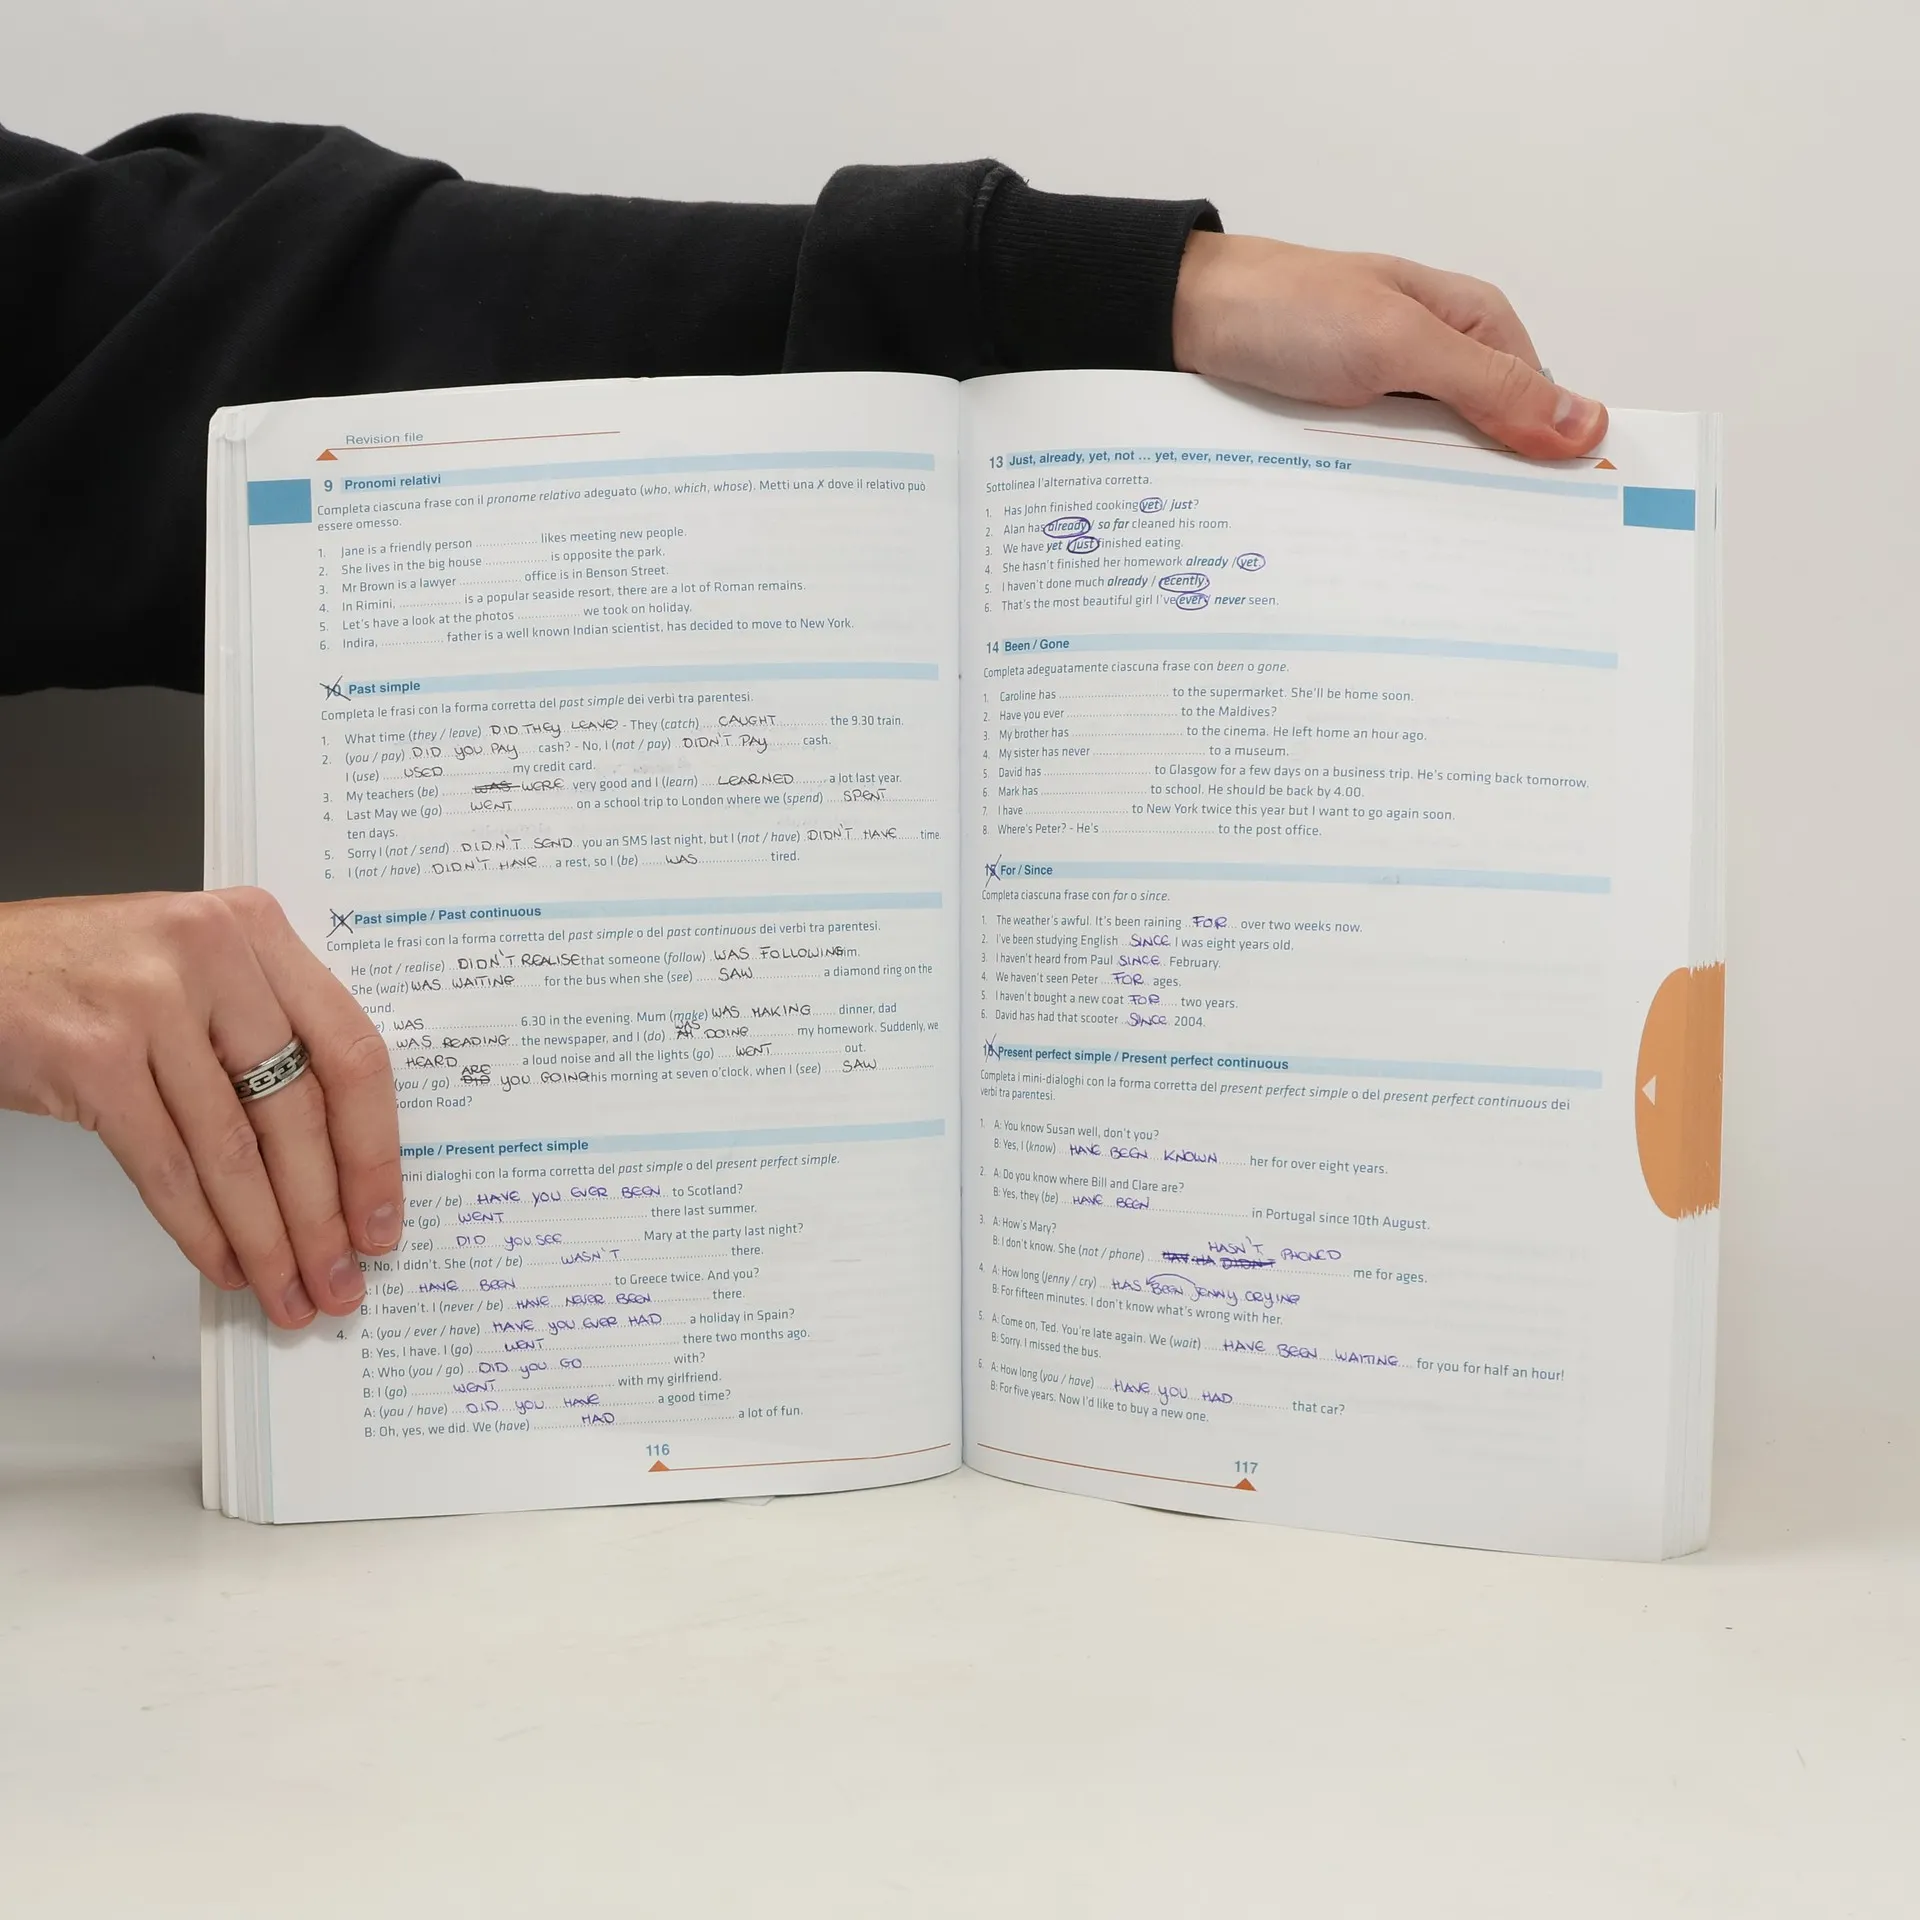 Revision file
9 Pronomi relativi
Completa ciascuna frase con il pronome relativo adeguato (who, which, whose). Metti una X dove il relativo può
essere omesso.
1. Jane is a friendly person .................. likes meeting new people.
2. She lives in the big house .................. is opposite the park.
3. Mr Brown is a lawyer .................. office is in Benson Street.
4. In Rimini, .................. is a popular seaside resort, there are a lot of Roman remains.
5. Let's have a look at the photos .................. we took on holiday.
6. Indira, .................. father is a well known Indian scientist, has decided to move to New York.
10 Past simple
Completa le frasi con la forma corretta del past simple dei verbi tra parentesi.
1. What time (they / leave) DID THEY LEAVE - They (catch) CAUGHT the 9.30 train.
2. (you / pay) DID YOU PAY cash? - No, I (not / pay) DIDN'T PAY cash.
I (use) USED my credit card.
3. My teachers (be) WAS WERE very good and I (learn) LEARNED a lot last year.
4. Last May we (go) WENT on a school trip to London where we (spend) SPENT
ten days.
5. Sorry I (not / send) DIDN'T SEND you an SMS last night, but I (not / have) DIDN'T HAVE time
6. I (not / have) DIDN'T HAVE a rest, so I (be) WAS tired.
11 Past simple / Past continuous
Completa le frasi con la forma corretta del past simple o del past continuous dei verbi tra parentesi.
He (not / realise) DIDN'T REALISE that someone (follow) WAS FOLLOWING im.
She (wait) WAS WAITING for the bus when she (see) SAW a diamond ring on the
ound.
e) WAS 6.30 in the evening. Mum (make) WAS MAKING dinner, dad
WAS READING the newspaper, and I (do) WAS DOING my homework. Suddenly, we
HEARD a loud noise and all the lights (go) WENT out.
(you / go) DID ARE YOU GOING this morning at seven o'clock, when I (see) SAW
Gordon Road?
imple / Present perfect simple
nini dialoghi con la forma corretta del past simple o del present perfect simple.
/ ever / be) HAVE YOU EVER BEEN to Scotland?
ve (go) WENT there last summer.
/ see) DID YOU SEE Mary at the party last night?
B: No, I didn't. She (not / be) WASN'T there.
A: I (be) HAVE BEEN to Greece twice. And you?
B: I haven't. I (never / be) HAVE NEVER BEEN there.
4. A: (you / ever / have) HAVE YOU EVER HAD a holiday in Spain?
B: Yes, I have. I (go) WENT there two months ago.
A: Who (you / go) DID YOU GO with?
B: I (go) WENT with my girlfriend.
A: (you / have) DID YOU HAVE a good time?
B: Oh, yes, we did. We (have) HAD a lot of fun.
116
13 Just, already, yet, not ... yet, ever, never, recently, so far
Sottolinea l'alternativa corretta.
1. Has John finished cooking yet / just?
2. Alan has already / so far cleaned his room.
3. We have yet / just finished eating.
4. She hasn't finished her homework already / yet.
5. I haven't done much already / recently.
6. That's the most beautiful girl I've ever / never seen.
14 Been / Gone
Completa adeguatamente ciascuna frase con been o gone.
1. Caroline has .................. to the supermarket. She'll be home soon.
2. Have you ever .................. to the Maldives?
3. My brother has .................. to the cinema. He left home an hour ago.
4. My sister has never .................. to a museum.
5. David has .................. to Glasgow for a few days on a business trip. He's coming back tomorrow.
6. Mark has .................. to school. He should be back by 4.00.
7. I have .................. to New York twice this year but I want to go again soon.
8. Where's Peter? - He's .................. to the post office.
15 For / Since
Completa ciascuna frase con for o since.
1. The weather's awful. It's been raining FOR over two weeks now.
2. I've been studying English SINCE I was eight years old.
3. I haven't heard from Paul SINCE February.
4. We haven't seen Peter FOR ages.
5. I haven't bought a new coat FOR two years.
6. David has had that scooter SINCE 2004.
16 Present perfect simple / Present perfect continuous
Completa i mini-dialoghi con la forma corretta del present perfect simple o del present perfect continuous dei
verbi tra parentesi.
1. A: You know Susan well, don't you?
B: Yes, I (know) HAVE BEEN KNOWN her for over eight years.
2. A: Do you know where Bill and Clare are?
B: Yes, they (be) HAVE BEEN in Portugal since 10th August.
3. A: How's Mary?
B: I don't know. She (not / phone) HASN'T PHONED me for ages.
4. A: How long (Jenny / cry) HAS BEEN JENNY CRYING
B: For fifteen minutes. I don't know what's wrong with her.
5. A: Come on, Ted. You're late again. We (wait) HAVE BEEN WAITING for you for half an hour!
B: Sorry. I missed the bus.
6. A: How long (you / have) HAVE YOU HAD that car?
B: For five years. Now I'd like to buy a new one.
117